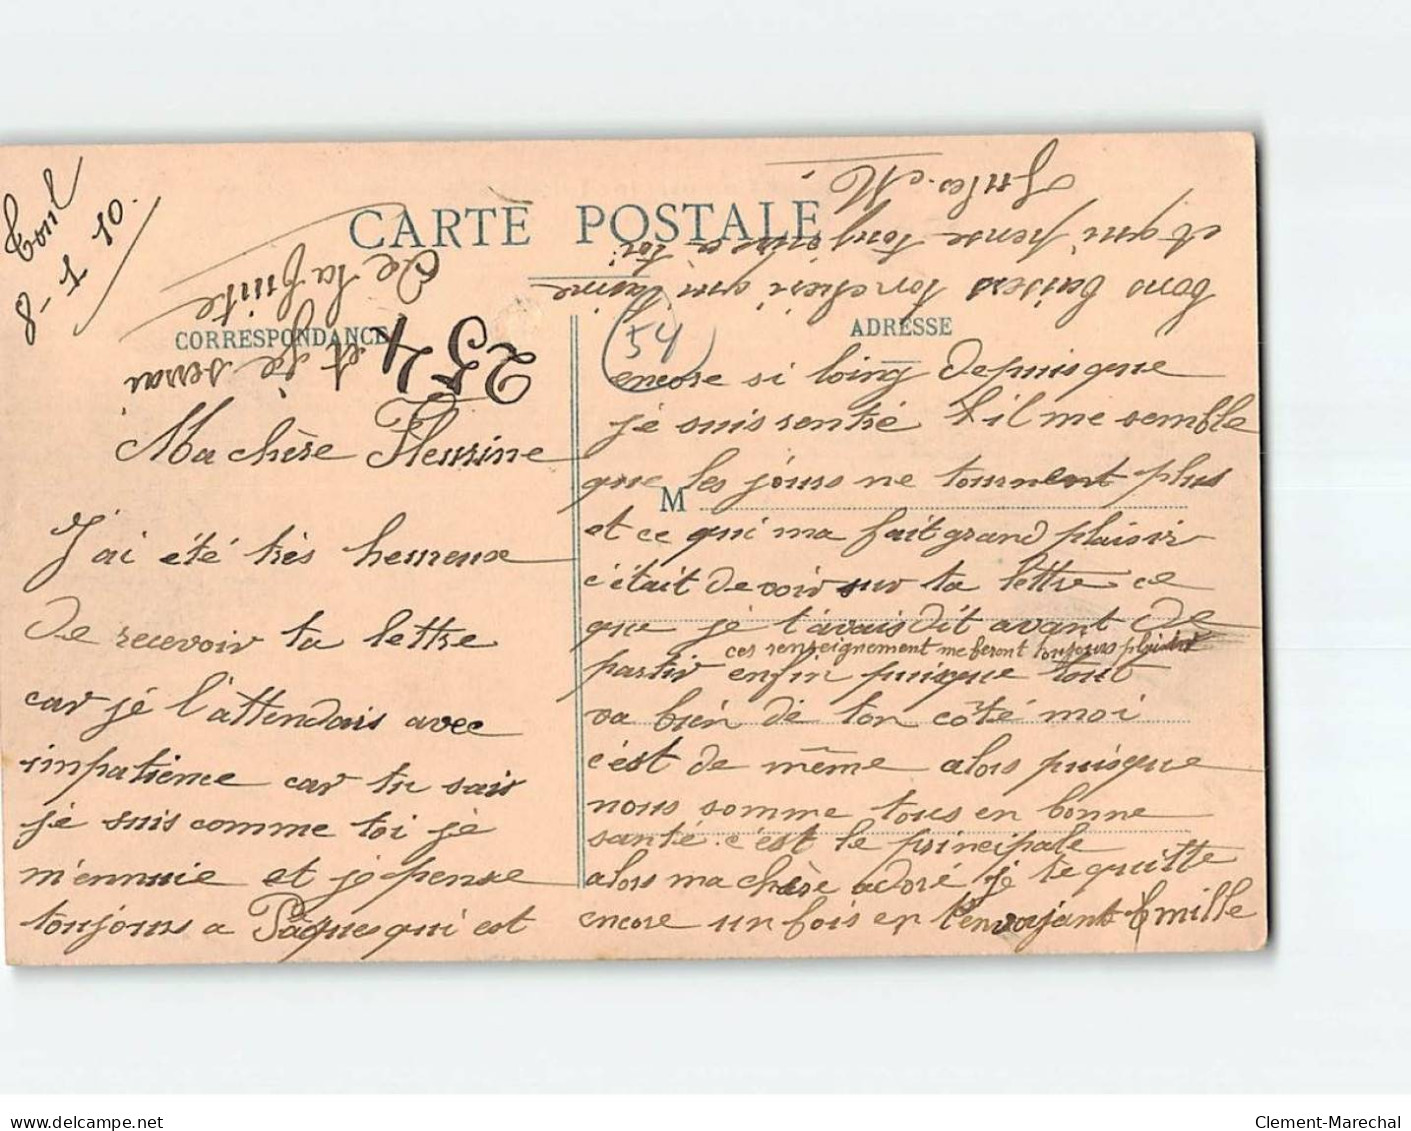 Toul
8-1-10.
CARTE POSTALE
CORRESPONDANCE
ADRESSE
M
254
54
Ma chère Fleurine
J'ai été très heureux
de recevoir ta lettre
car je l'attendais avec
impatience car tu sais
je suis comme toi je
m'ennuie et je pense
toujours a Pâques qui est
encore si loing depuis que
je suis rentré il me semble
que les jours ne tournent plus
et ce qui ma fait grand plaisir
c'était de voir sur ta lettre ce
que je t'avais dit avant de
partir enfin puisque tout
ces renseignement me feront toujours plaisir
va bien de ton côté moi
c'est de même alors puisque
nous somme tous en bonne
santé c'est le principale
alors ma chère adoré je te quitte
encore un fois en t'envoyant mille
bons baisers ton chéri qui t'aime
et qui pense toujours a toi
Jules. M.
et je serai
de la fuite
Clement-Marechal
www.delcampe.net